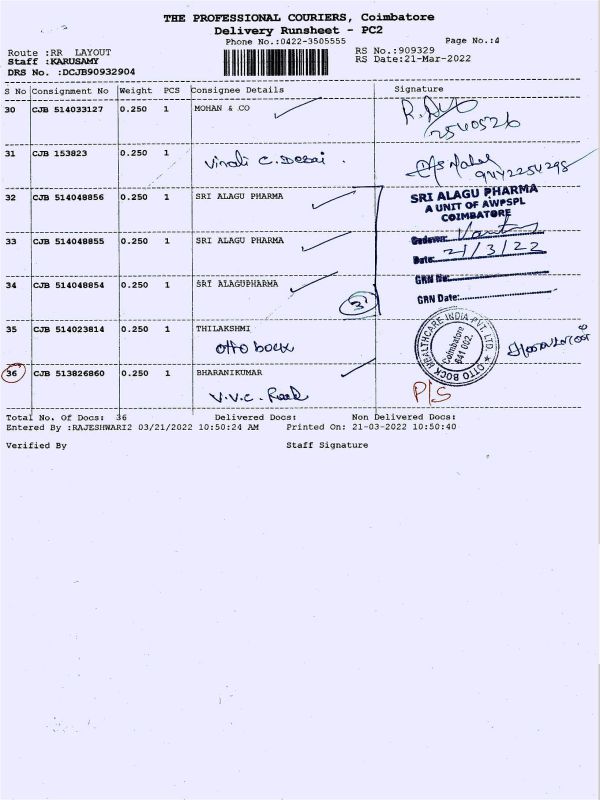 THE PROFESSIONAL COURIERS, Coimbatore
Delivery Runsheet - PC2
Phone No.:0422-3505555 Page No.:4
Route :RR LAYOUT RS No.:909329
Staff :KARUSAMY RS Date:21-Mar-2022
DRS No. :DCJB90932904
S No Consignment No Weight PCS Consignee Details Signature
30 CJB 514033127 0.250 1 MOHAN & CO
2540526
31 CJB 153823 0.250 1 Vinali C. Desai .
9442254298
32 CJB 514048856 0.250 1 SRI ALAGU PHARMA
SRI ALAGU PHARMA
A UNIT OF AWPSPL
COIMBATORE
33 CJB 514048855 0.250 1 SRI ALAGU PHARMA
Godown:
Date: 21/3/22
34 CJB 514048854 0.250 1 SRI ALAGUPHARMA
GRN No:
GRN Date:
3
35 CJB 514023814 0.250 1 THILAKSHMI
Otto bock
OTTO BOCK HEALTHCARE INDIA PVT. LTD. ★
Coimbatore
641 002.
36 CJB 513826860 0.250 1 BHARANIKUMAR
V.V.C. P/S
Total No. Of Docs: 36 Delivered Docs: Non Delivered Docs:
Entered By :RAJESHWARI2 03/21/2022 10:50:24 AM Printed On: 21-03-2022 10:50:40
Verified By Staff Signature